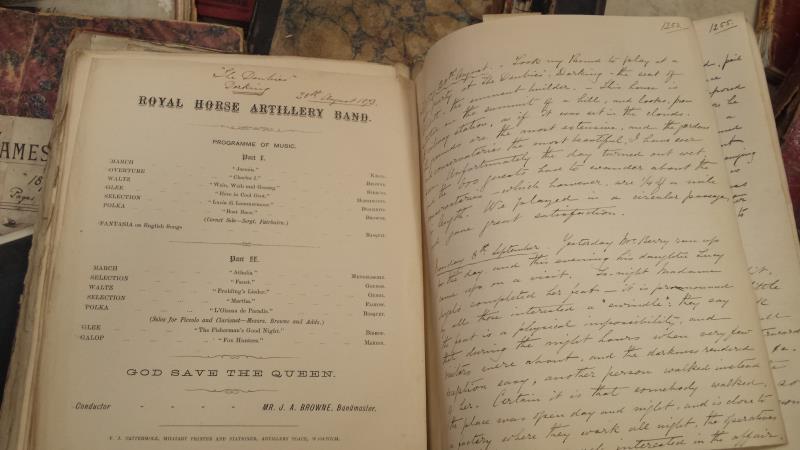 "The Denbies"
Dorking
30th August 187
ROYAL HORSE ARTILLERY BAND.
PROGRAMME OF MUSIC.
Part I.
MARCH
OVERTURE
WALTZ "Charles I."
GLEE "Wein, Weib und Gesang"
SELECTION "Here in Cool Grot,"
POLKA "Lucia di Lammermoor"
"Boat Race."
(Cornet Solo—Sergt. Fairbairn.)
FANTASIA on English Songs
Part II.
MARCH "Athalia" MENDELSSOHN.
SELECTION "Faust" GOUNOD.
WALTZ "Fruhling's Lieder."
SELECTION "Martha." FLOTOW.
POLKA "L'Oiseau de Paradis." BOSQUET.
(Solos for Piccolo and Clarionet—Messrs. Browne and Adds.)
GLEE "The Fisherman's Good Night." BISHOP.
GALOP "Fox Hunters."
GOD SAVE THE QUEEN.
Conductor MR. J. A. BROWNE, Bandmaster.
F. J. CATTERMOLE, MILITARY PRINTER AND STATIONER, ARTILLERY PLACE, WOOLWICH.
AMES
18
Pages
1252
30th August. Took my Band to play at a
party at the Denbies, Dorking - the seat of
the eminent builder. - This house is
on the summit of a hill, and looks, from
railway station, as if it was set in the clouds.
grounds are the most extensive, and the gardens
conservatories the most beautiful, I have ever
Unfortunately the day turned out wet,
the 600 guests had to wander about the
conservatories - which however, are 1/4 of a mile
length. We played in a circular passage,
gave great satisfaction.
8th September. Yesterday Mr. Berry run up
the day and this evening his daughter Lucy
came up on a visit. To-night Madame
completed her feat - it is pronounced
all those interested a "swindle": they say
the feat is a physical impossibility, and
that during the night hours when very few
were about, and the darkness rendered
easy, another person walked instead
her. Certain it is that somebody walked, as
the place was open day and night, and is close to
a factory where they work all night, the operatives
interested in the affair.
1255.